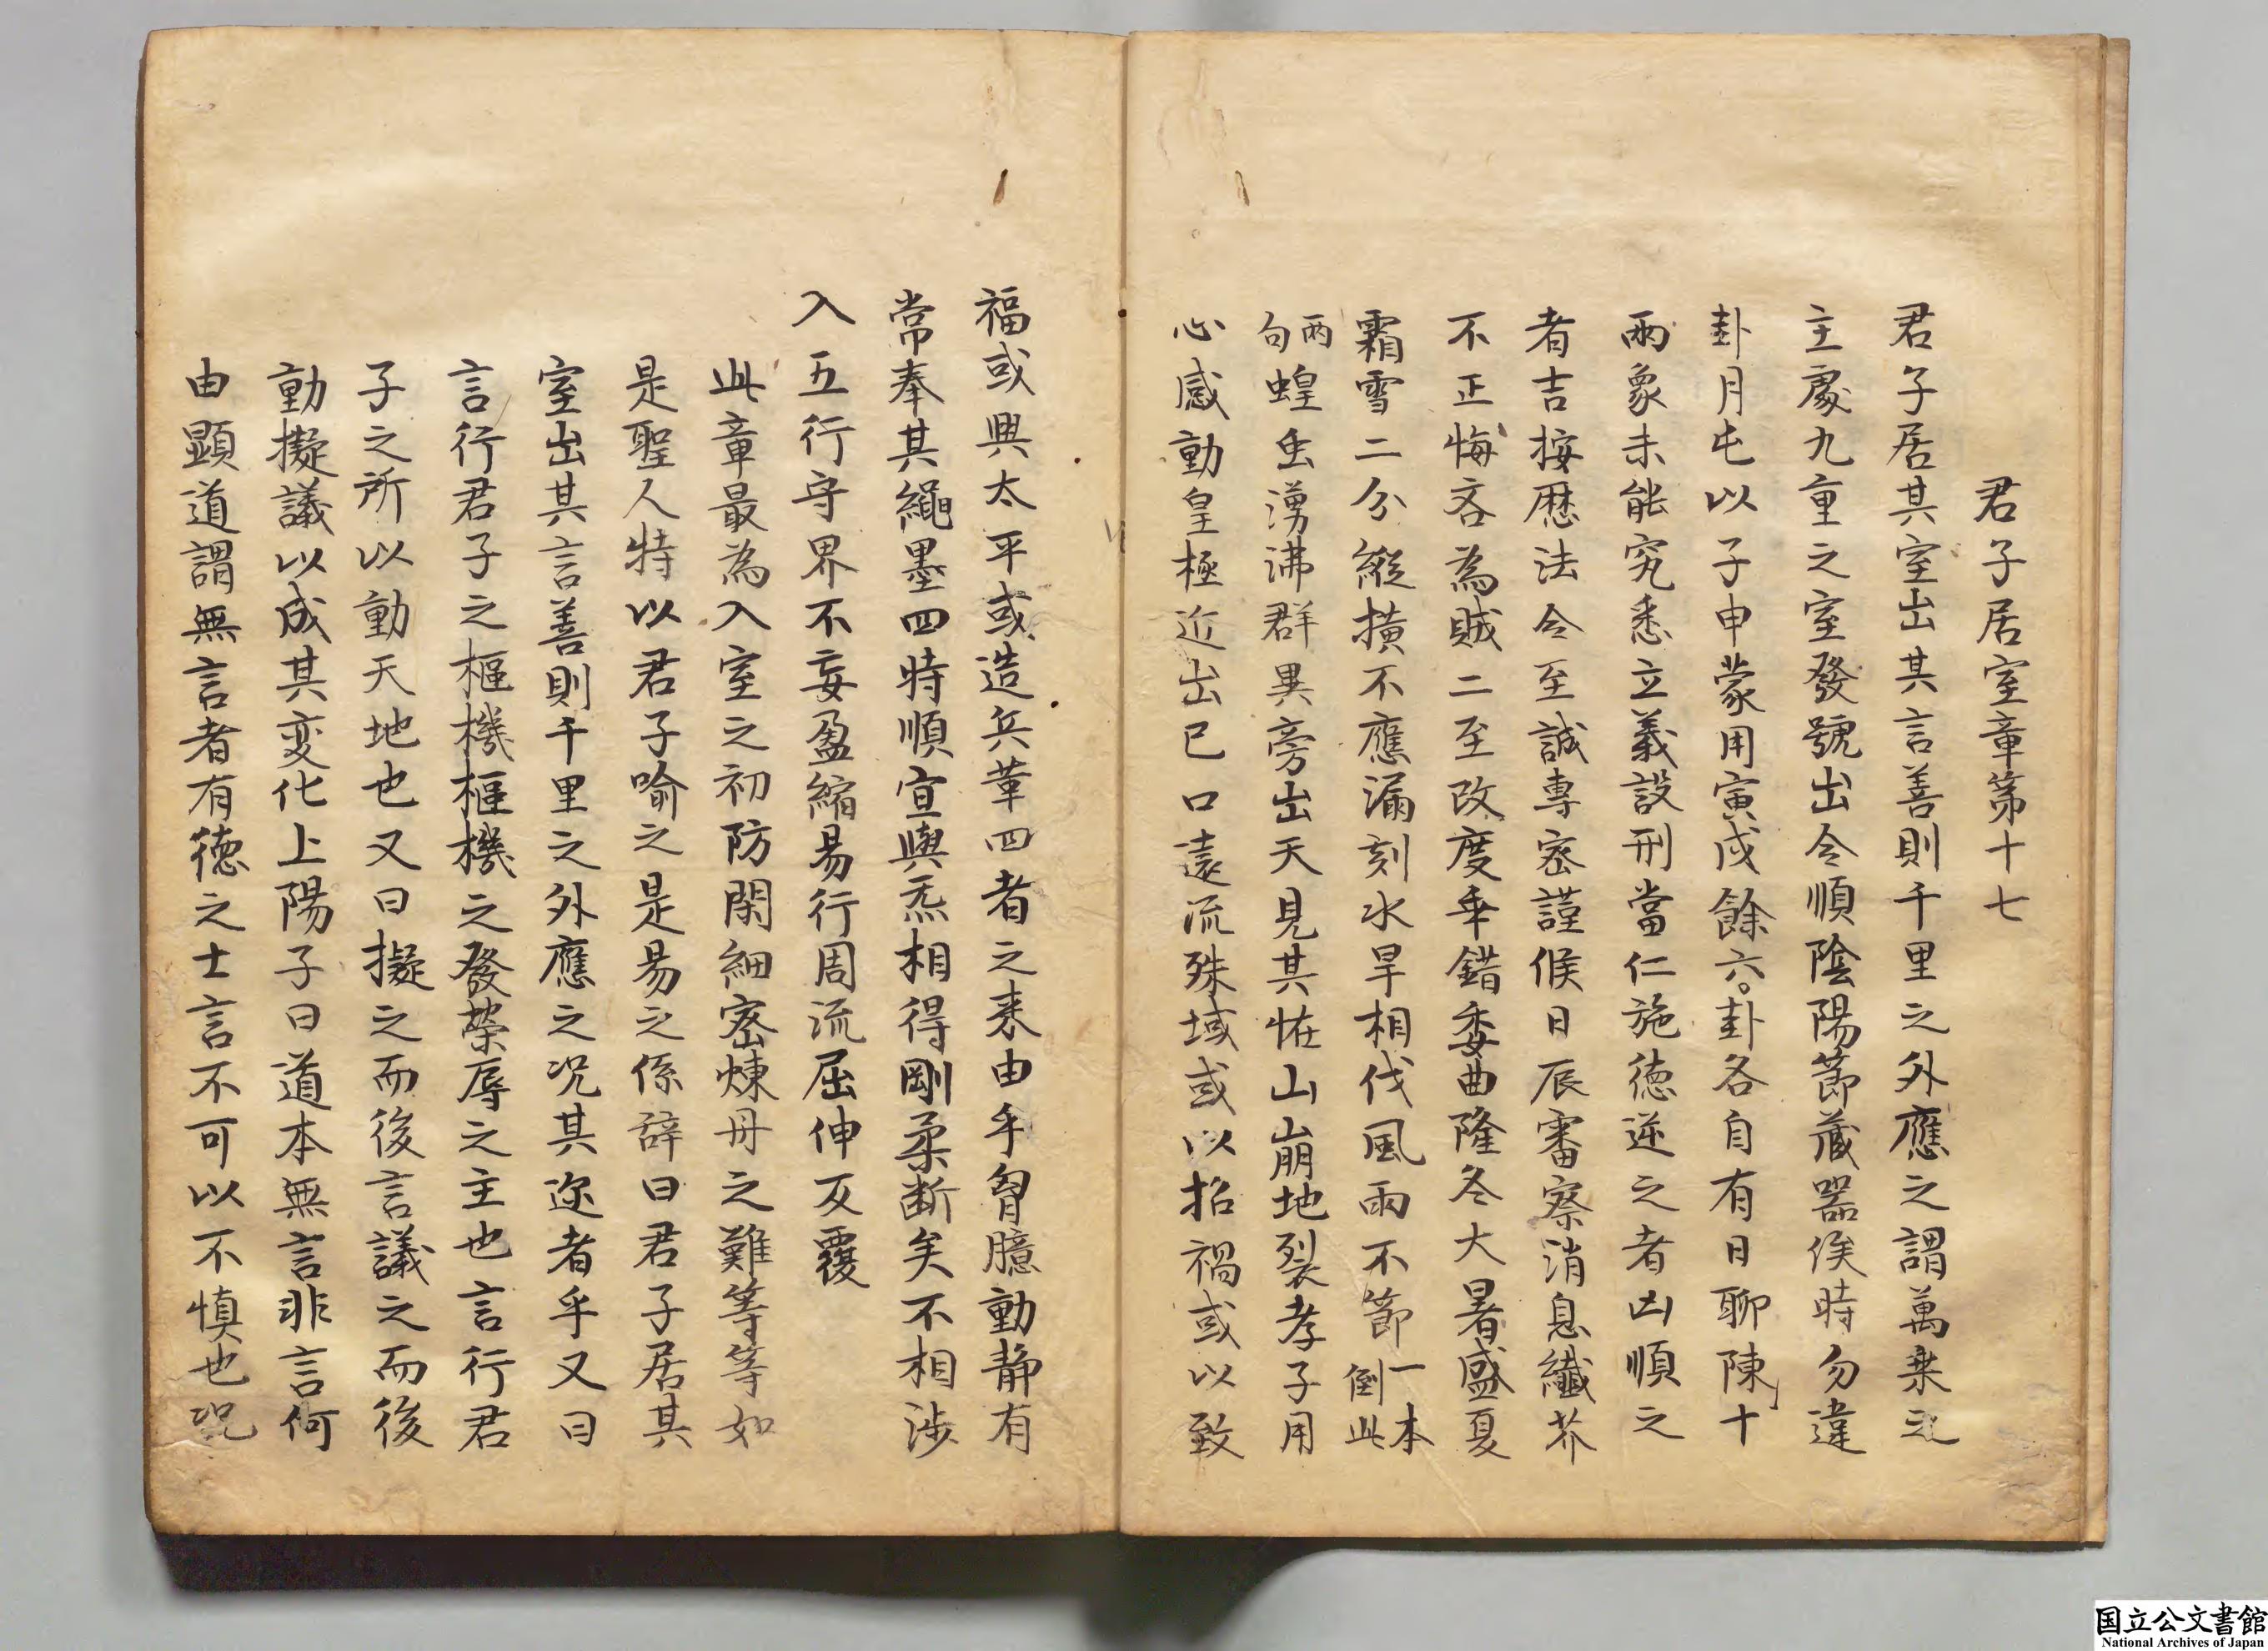 君子居室章第十七
君子居其室出其言善則千里之外應之謂萬乗之
主處九重之室發號出令順陰陽節藏器俟時勿違
卦月屯以子申蒙用寅戌餘六。卦各自有日聊陳十
兩象未能究悉立義設刑當仁施德逆之者凶順之
者吉按歴法令至誠專密謹候日辰審察消息纖芥
不正悔吝為賊二至改度乖錯委曲隆冬大暑盛夏
霜雪二分縱横不應漏刻水旱相伐風雨不節一本倒此
兩句蝗虫湧沸群異旁出天見其恠山崩地裂孝子用
心感動皇極近出已口遠流殊域或以招禍或以致
福或興太平或造兵革四者之来由乎胷臆動静有
常奉其繩墨四時順宜與炁相得剛柔断矣不相渉
入五行守界不妄盈縮易行周流屈伸反覆
此章最為入室之初防閑細密煉丹之難等等如
是聖人特以君子喻之是易之係辞曰君子居其
室出其言善則千里之外應之况其迩者乎又曰
言行君子之樞機樞機之發榮辱之主也言行君
子之所以動天地也又曰擬之而後言議之而後
動擬議以成其变化上陽子曰道本無言非言何
由顕道謂無言者有德之士言不可以不慎也况
国立公文書館
National Archives of Japan